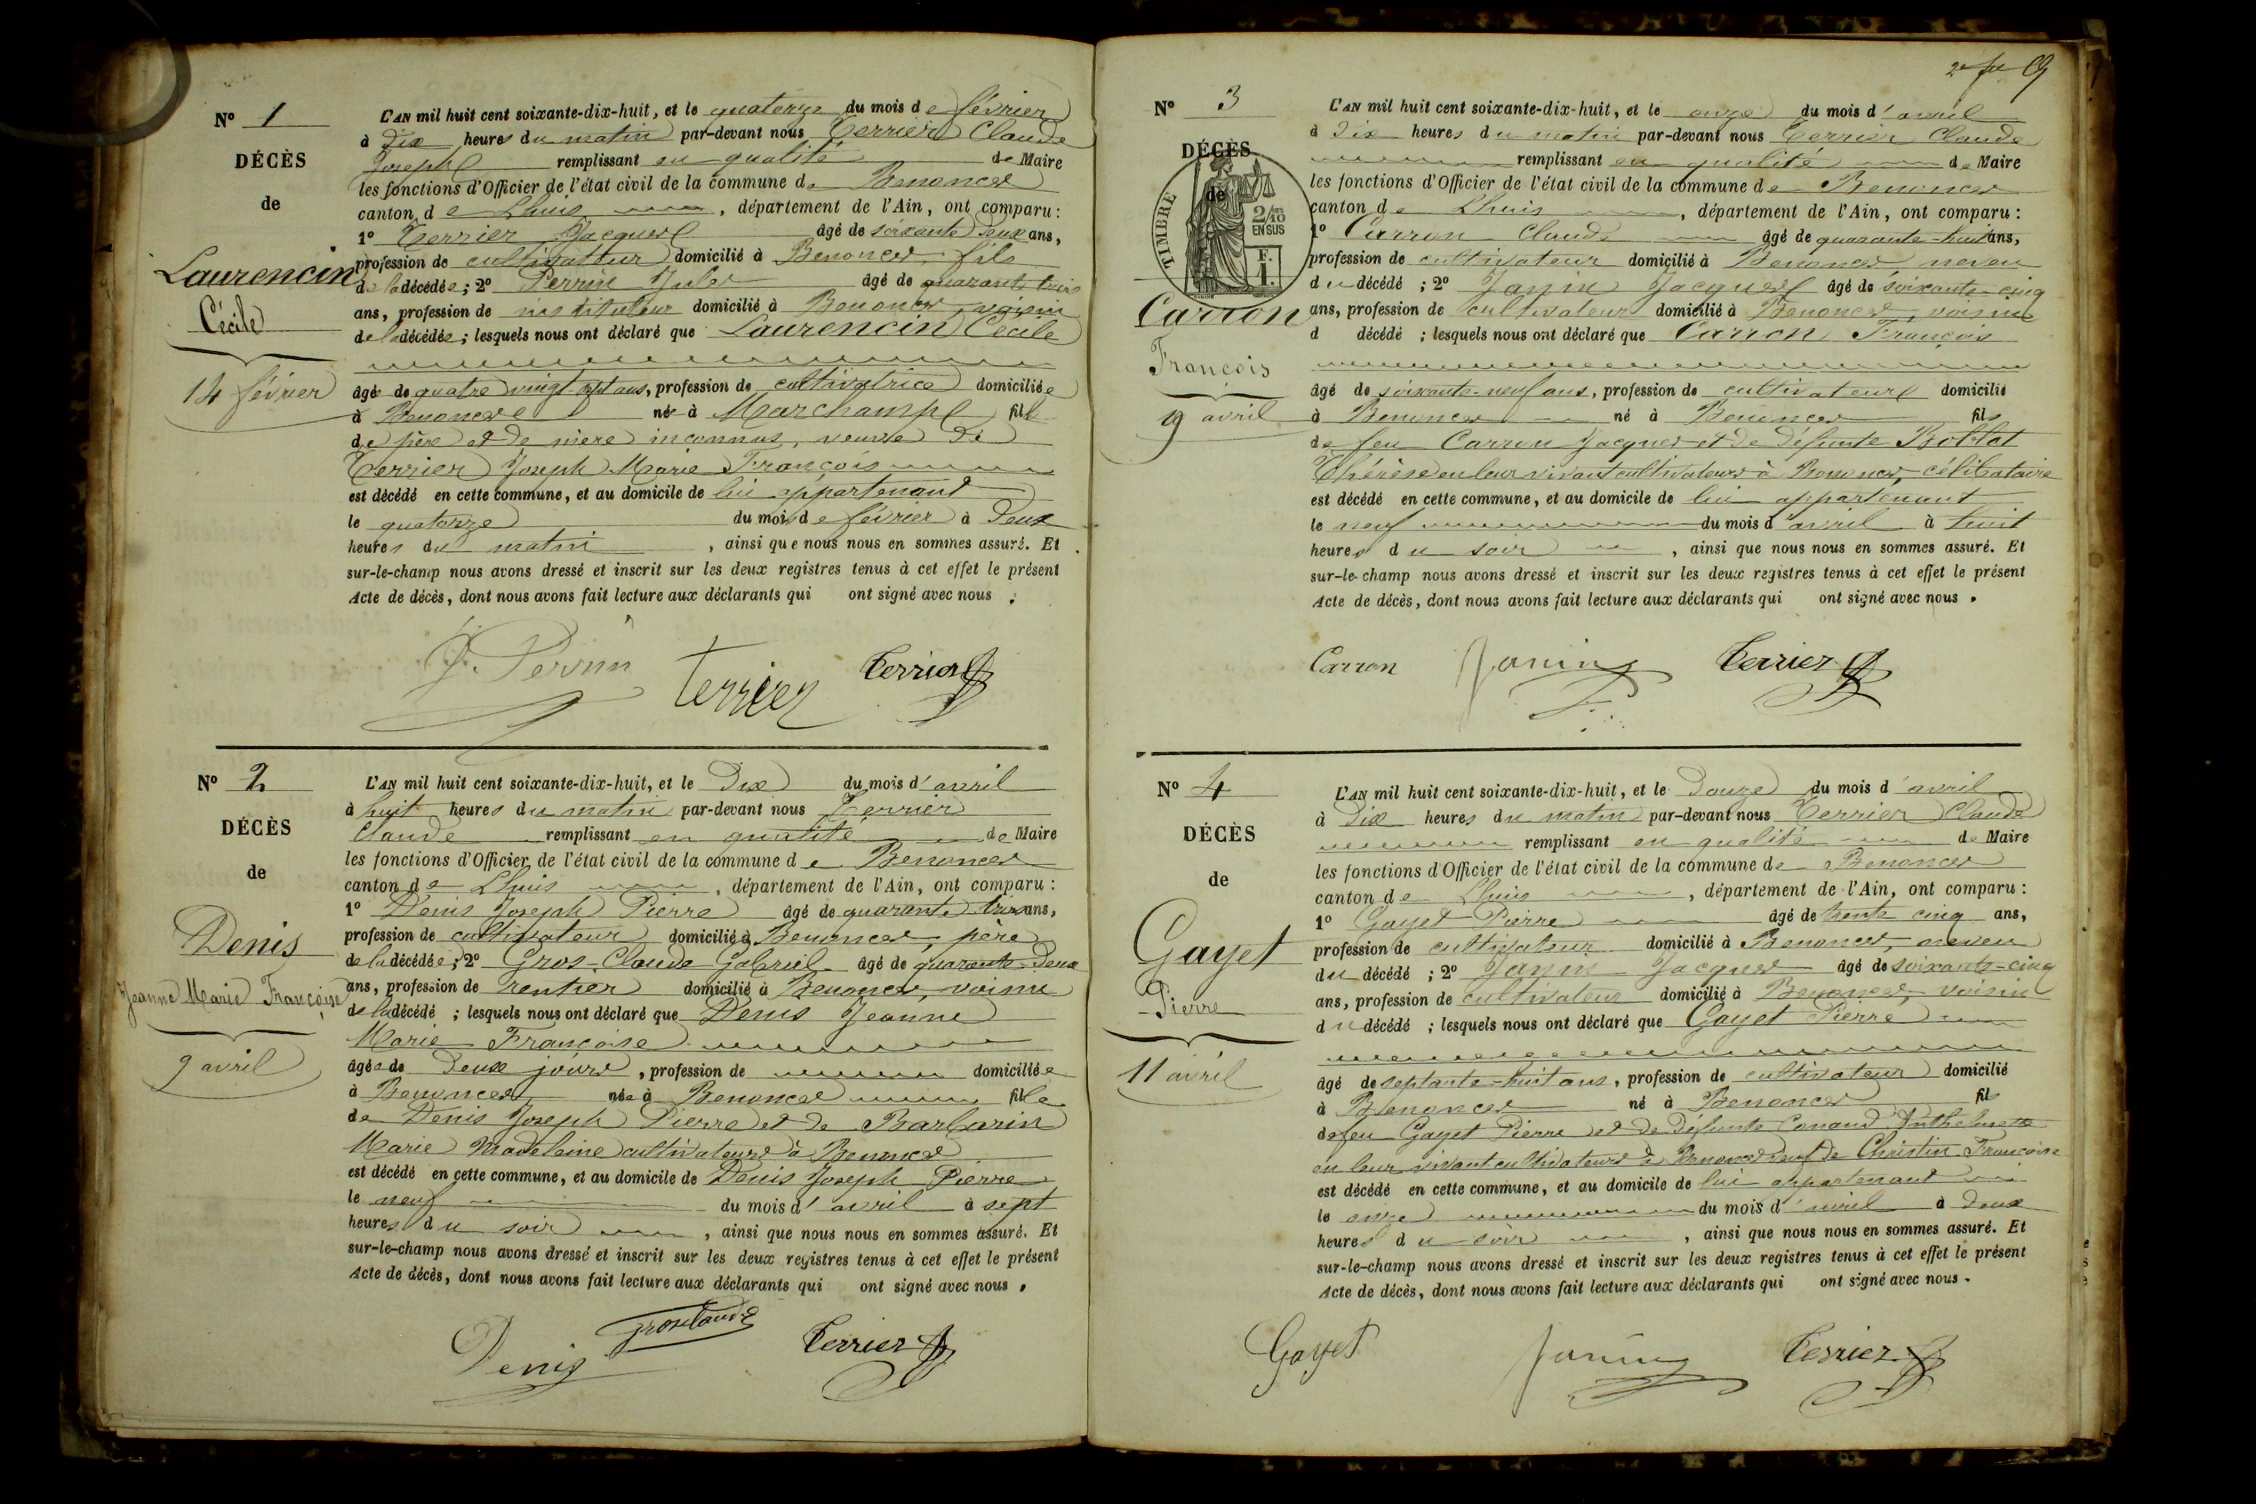 Nº 1
DÉCÈS
de
Laurencin
Cécile
14 février
L'AN mil huit cent soixante-dix-huit, et le quatorze du mois de février
à Dix heures du matin par-devant nous Terrier Claude
Joseph remplissant en qualité de Maire
les fonctions d'Officier de l'état civil de la commune de Benonces
canton de Lhuis, département de l'Ain, ont comparu :
1º Terrier Jacques âgé de soixante deux ans,
profession de cultivateur domicilié à Benonces fils
de la décédée ; 2º Perrin Jules âgé de quarante trois
ans, profession de instituteur domicilié à Benonces, voisin
de la décédée ; lesquels nous ont déclaré que Laurencin Cécile
âgée de quatre vingt sept ans, profession de cultivatrice domiciliée
à Benonces née à Marchamp fille
de père et de mère inconnus, veuve de
Terrier Joseph Marie François
est décédé en cette commune, et au domicile de lui appartenant
le quatorze du mois de février à Deux
heures du matin, ainsi que nous nous en sommes assuré. Et
sur-le-champ nous avons dressé et inscrit sur les deux registres tenus à cet effet le présent
Acte de décès, dont nous avons fait lecture aux déclarants qui ont signé avec nous.
J. Perrin Terrier Terrier
Nº 2
DÉCÈS
de
Denis
Jeanne Marie Françoise
9 avril
L'AN mil huit cent soixante-dix-huit, et le Dix du mois d'avril
à huit heures du matin par-devant nous Terrier
Claude remplissant en qualité de Maire
les fonctions d'Officier de l'état civil de la commune de Benonces
canton de Lhuis, département de l'Ain, ont comparu :
1º Denis Joseph Pierre âgé de quarante trois ans,
profession de cultivateur domicilié à Benonces, père
de la décédée ; 2º Gros-Claude Gabriel âgé de quarante-deux
ans, profession de rentier domicilié à Benonces, voisin
de la décédé ; lesquels nous ont déclaré que Denis Jeanne
Marie Françoise
âgée de Deux jours, profession de domiciliée
à Benonces, née à Benonces fille
de Denis Joseph Pierre et de Barbarin
Marie Madeleine cultivateurs à Benonces
est décédé en cette commune, et au domicile de Denis Joseph Pierre
le neuf du mois d'avril à sept
heures du soir, ainsi que nous nous en sommes assuré. Et
sur-le-champ nous avons dressé et inscrit sur les deux registres tenus à cet effet le présent
Acte de décès, dont nous avons fait lecture aux déclarants qui ont signé avec nous.
Denis Grosclaude Terrier
Nº 3
DÉCÈS
de
TIMBRE
2/10 EN SUS
F. 1.
Carron
François
9 avril
L'AN mil huit cent soixante-dix-huit, et le onze du mois d'avril
à Dix heures du matin par-devant nous Terrier Claude
remplissant en qualité de Maire
les fonctions d'Officier de l'état civil de la commune de Benonces
canton de Lhuis, département de l'Ain, ont comparu :
1º Carron Claude âgé de quarante-huit ans,
profession de cultivateur domicilié à Benonces neveu
du décédé ; 2º Janin Jacques âgé de soixante-cinq
ans, profession de cultivateur domicilié à Benonces, voisin
d décédé ; lesquels nous ont déclaré que Carron François
âgé de soixante-neuf ans, profession de cultivateur domicilié
à Benonces né à Benonces fils
de feu Carron Jacques et de Défunte Bobllat
Thérèse en leur vivant cultivateurs à Benonces, célibataire
est décédé en cette commune, et au domicile de lui appartenant
le neuf du mois d'avril à huit
heures du soir, ainsi que nous nous en sommes assuré. Et
sur-le-champ nous avons dressé et inscrit sur les deux registres tenus à cet effet le présent
Acte de décès, dont nous avons fait lecture aux déclarants qui ont signé avec nous.
Carron Janin Terrier
Nº 4
DÉCÈS
de
Gayet
Pierre
11 avril
L'AN mil huit cent soixante-dix-huit, et le Douze du mois d'avril
à Dix heures du matin par-devant nous Terrier Claude
remplissant en qualité de Maire
les fonctions d'Officier de l'état civil de la commune de Benonces
canton de Lhuis, département de l'Ain, ont comparu :
1º Gayet Pierre âgé de trente cinq ans,
profession de cultivateur domicilié à Benonces, neveu
du décédé ; 2º Janin Jacques âgé de soixante-cinq
ans, profession de cultivateur domicilié à Benonces, voisin
du décédé ; lesquels nous ont déclaré que Gayet Pierre
âgé de septante-huit ans, profession de cultivateur domicilié
à Benonces né à Benonces fils
de feu Gayet Pierre et de Défunte Canand Anthelmette
en leur vivant cultivateurs à Benonces veuf de Christin Françoise
est décédé en cette commune, et au domicile de lui appartenant
le onze du mois d'avril à Deux
heures du soir, ainsi que nous nous en sommes assuré. Et
sur-le-champ nous avons dressé et inscrit sur les deux registres tenus à cet effet le présent
Acte de décès, dont nous avons fait lecture aux déclarants qui ont signé avec nous.
Gayet Janin Terrier